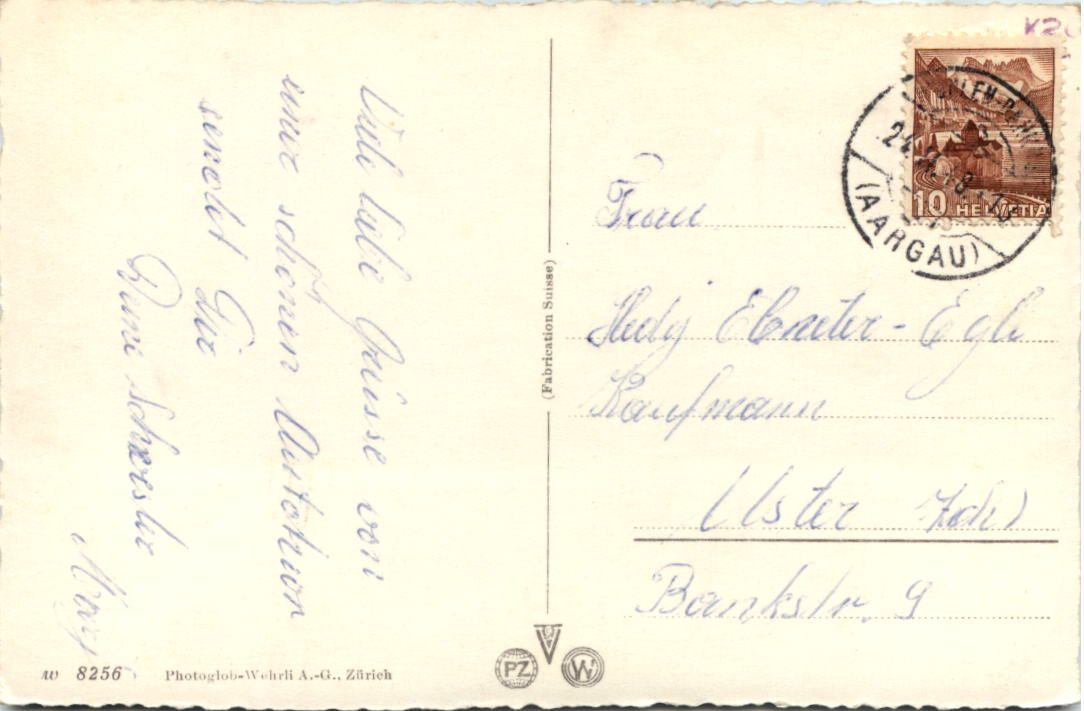 Viele liebe Grüsse von
einer schönen Autotour
sendet Dir
Deine Schwester
Mary
Frau
Hedy Ebneter-Egli
Kaufmann
Uster (Zch)
Bankstr. 9
(Fabrication Suisse)
10 HELVETIA
(AARGAU)
W 8256 Photoglob-Wehrli A.-G., Zürich
PZ
W